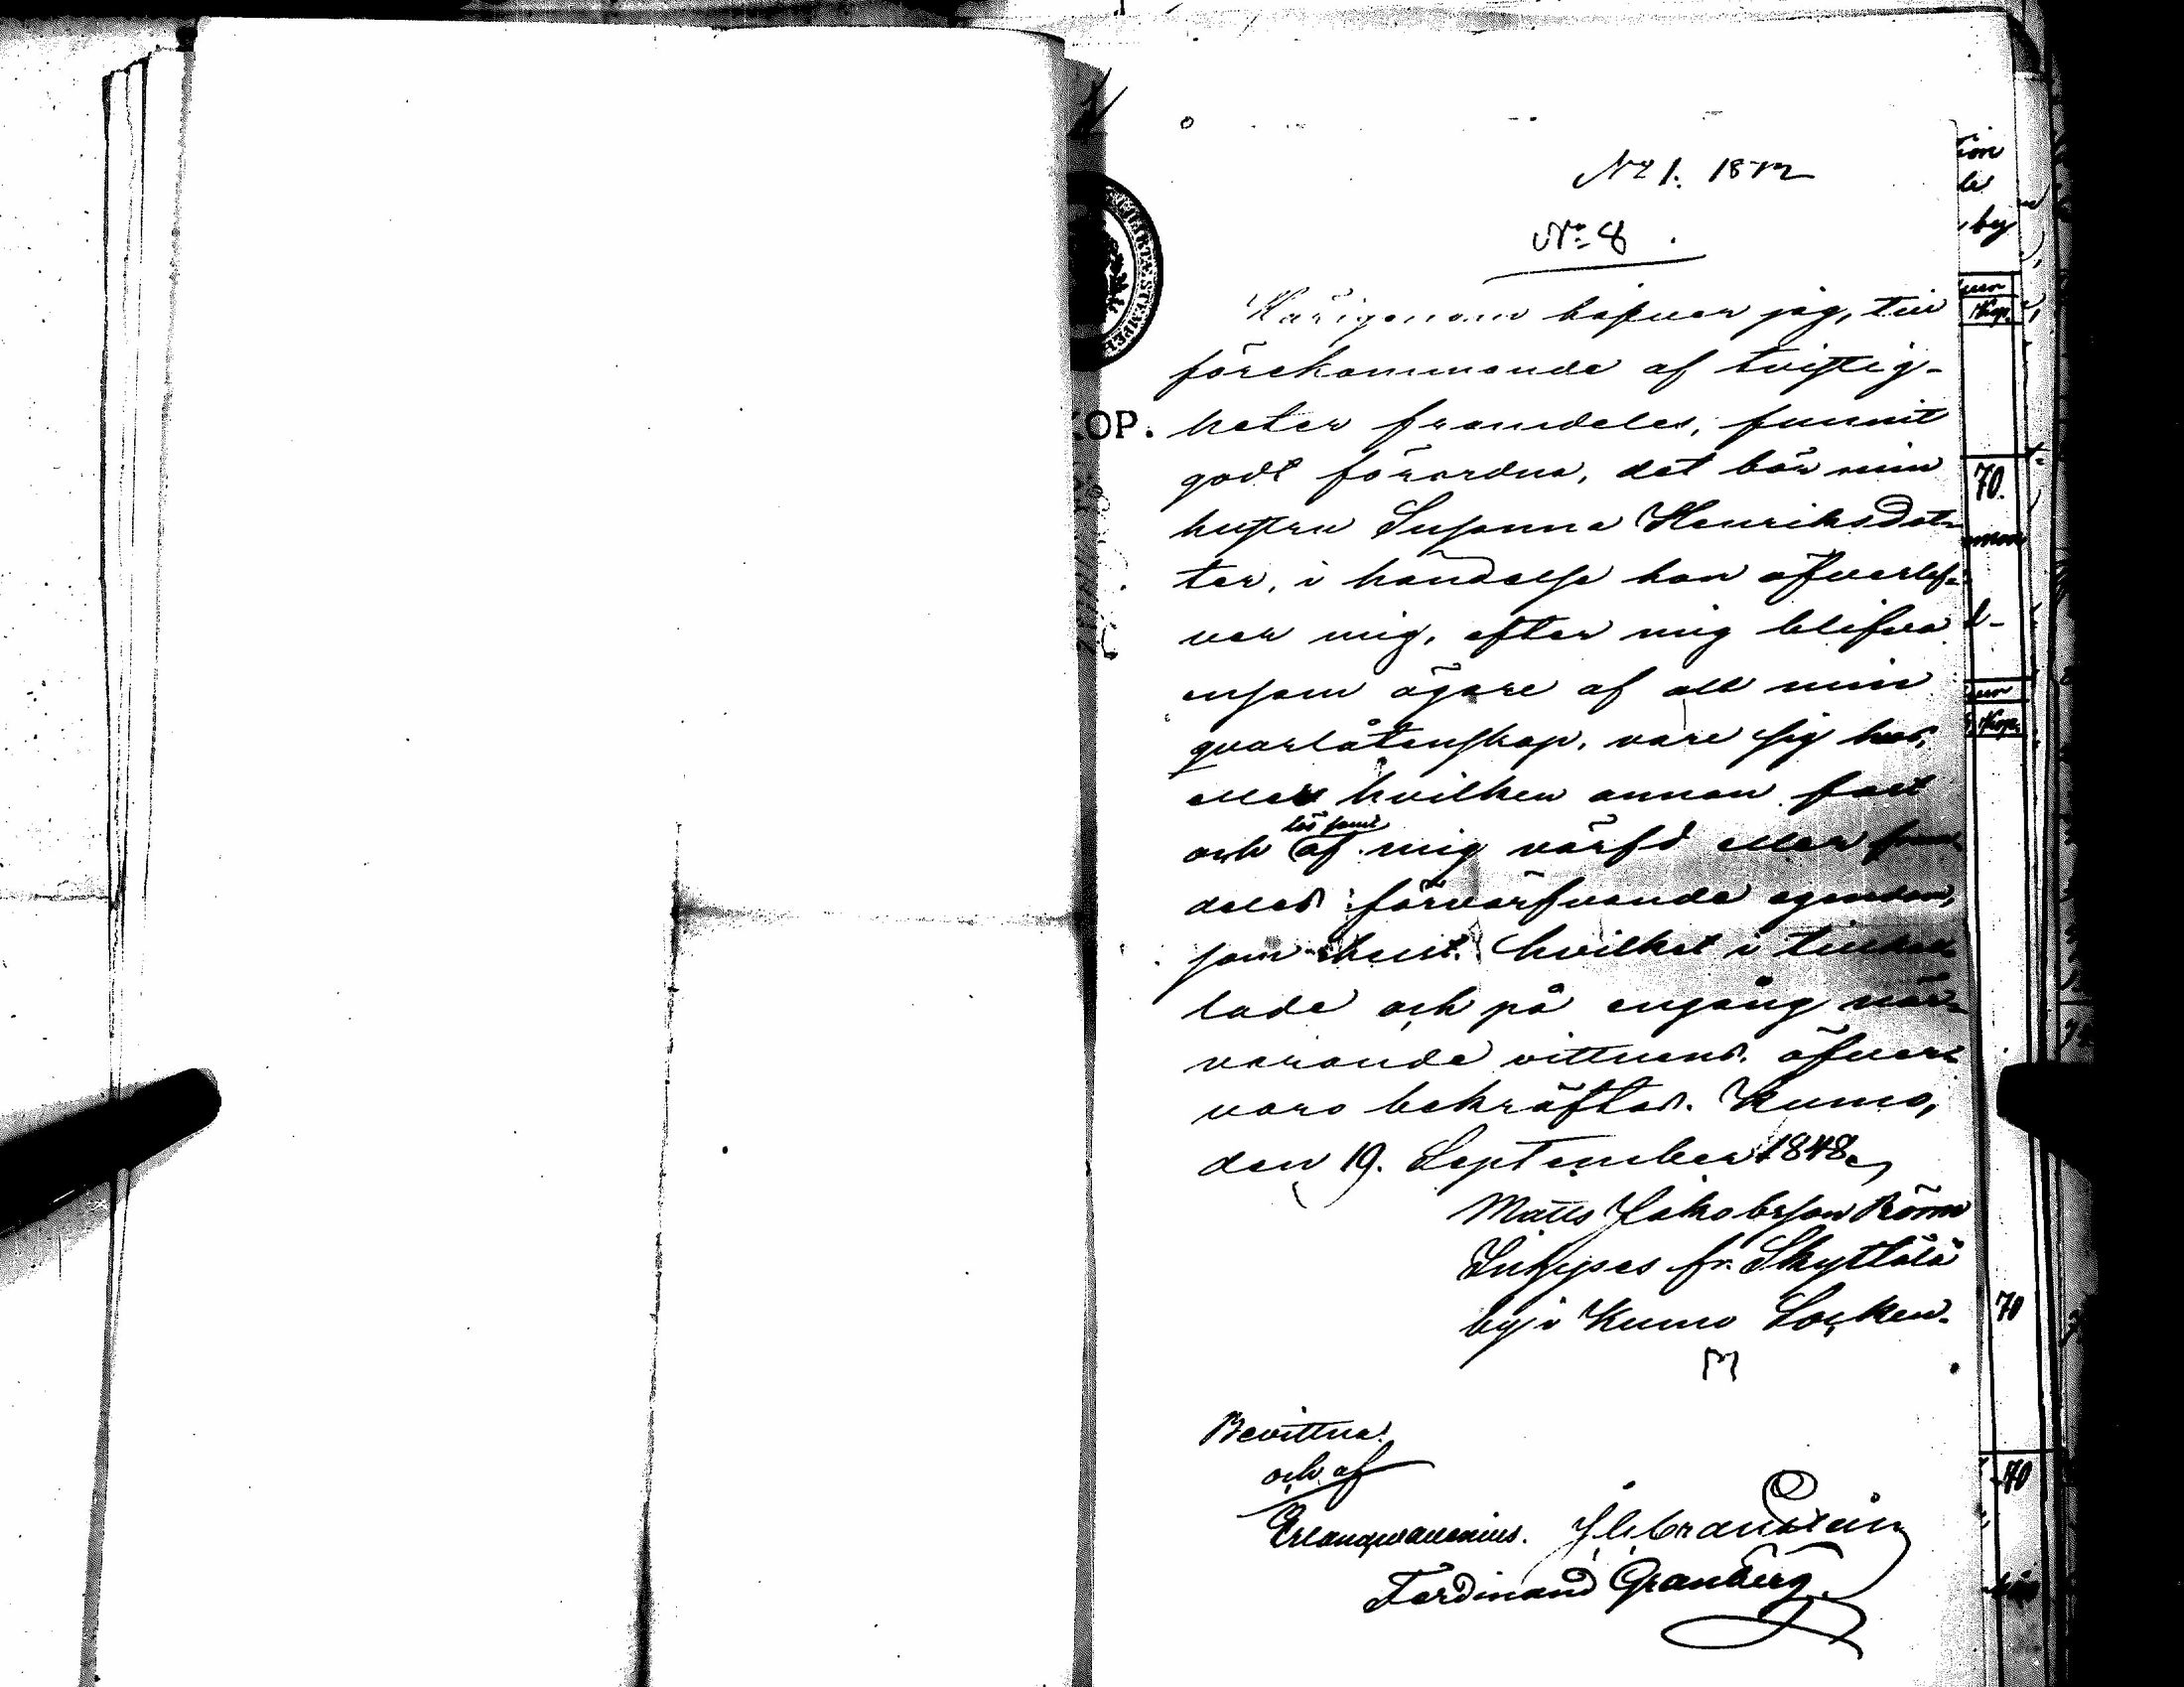 N:r 1. 1872
N:o 8.
Härigenom hafver jag, till
förekommande af tvistig-
heter framdeles, funnit
godt förordna, det bör min
hustru Susanna Henriksdot-
ter, i händelse hon öfverlef-
ver mig, efter mig blifva
ensam ägare af all min
qvarlåtenskap, vare sig hus,
eller hvilken annan fast
lös samt
och af mig värfd eller fram-
deles förvärfvande egendom,
som helst. Hvilket i tillkal-
lade och på engång när-
varande vittnens öfver-
varo bekräftas. Kumo,
den 19. September 1848.
Matts Jakobsson
fr. Skyttälä
by i Kumo Socken.
M
Bevittna:
och af
Ferdinand Granberg.
KOP.
70.
Kop.
70
70
by